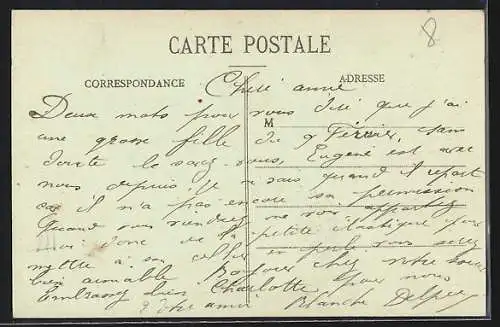 8
CARTE POSTALE
CORRESPONDANCE
ADRESSE
M
Cheré amie
Deux mots pour vous dire que j'ai
une grosse fille du 9 Février, sans
doute le savez vous, Eugène est avec
nous depuis. Je ne sais quand il repart
car il n'a pas encore sa permission
Quand vous viendrez me voir apportez
moi donc de la petite élastique pour
mettre à son en perle vous serez
bien aimable Bonjour chez votre
Embrassez bien Charlotte pour nous
Votre amie Blanche